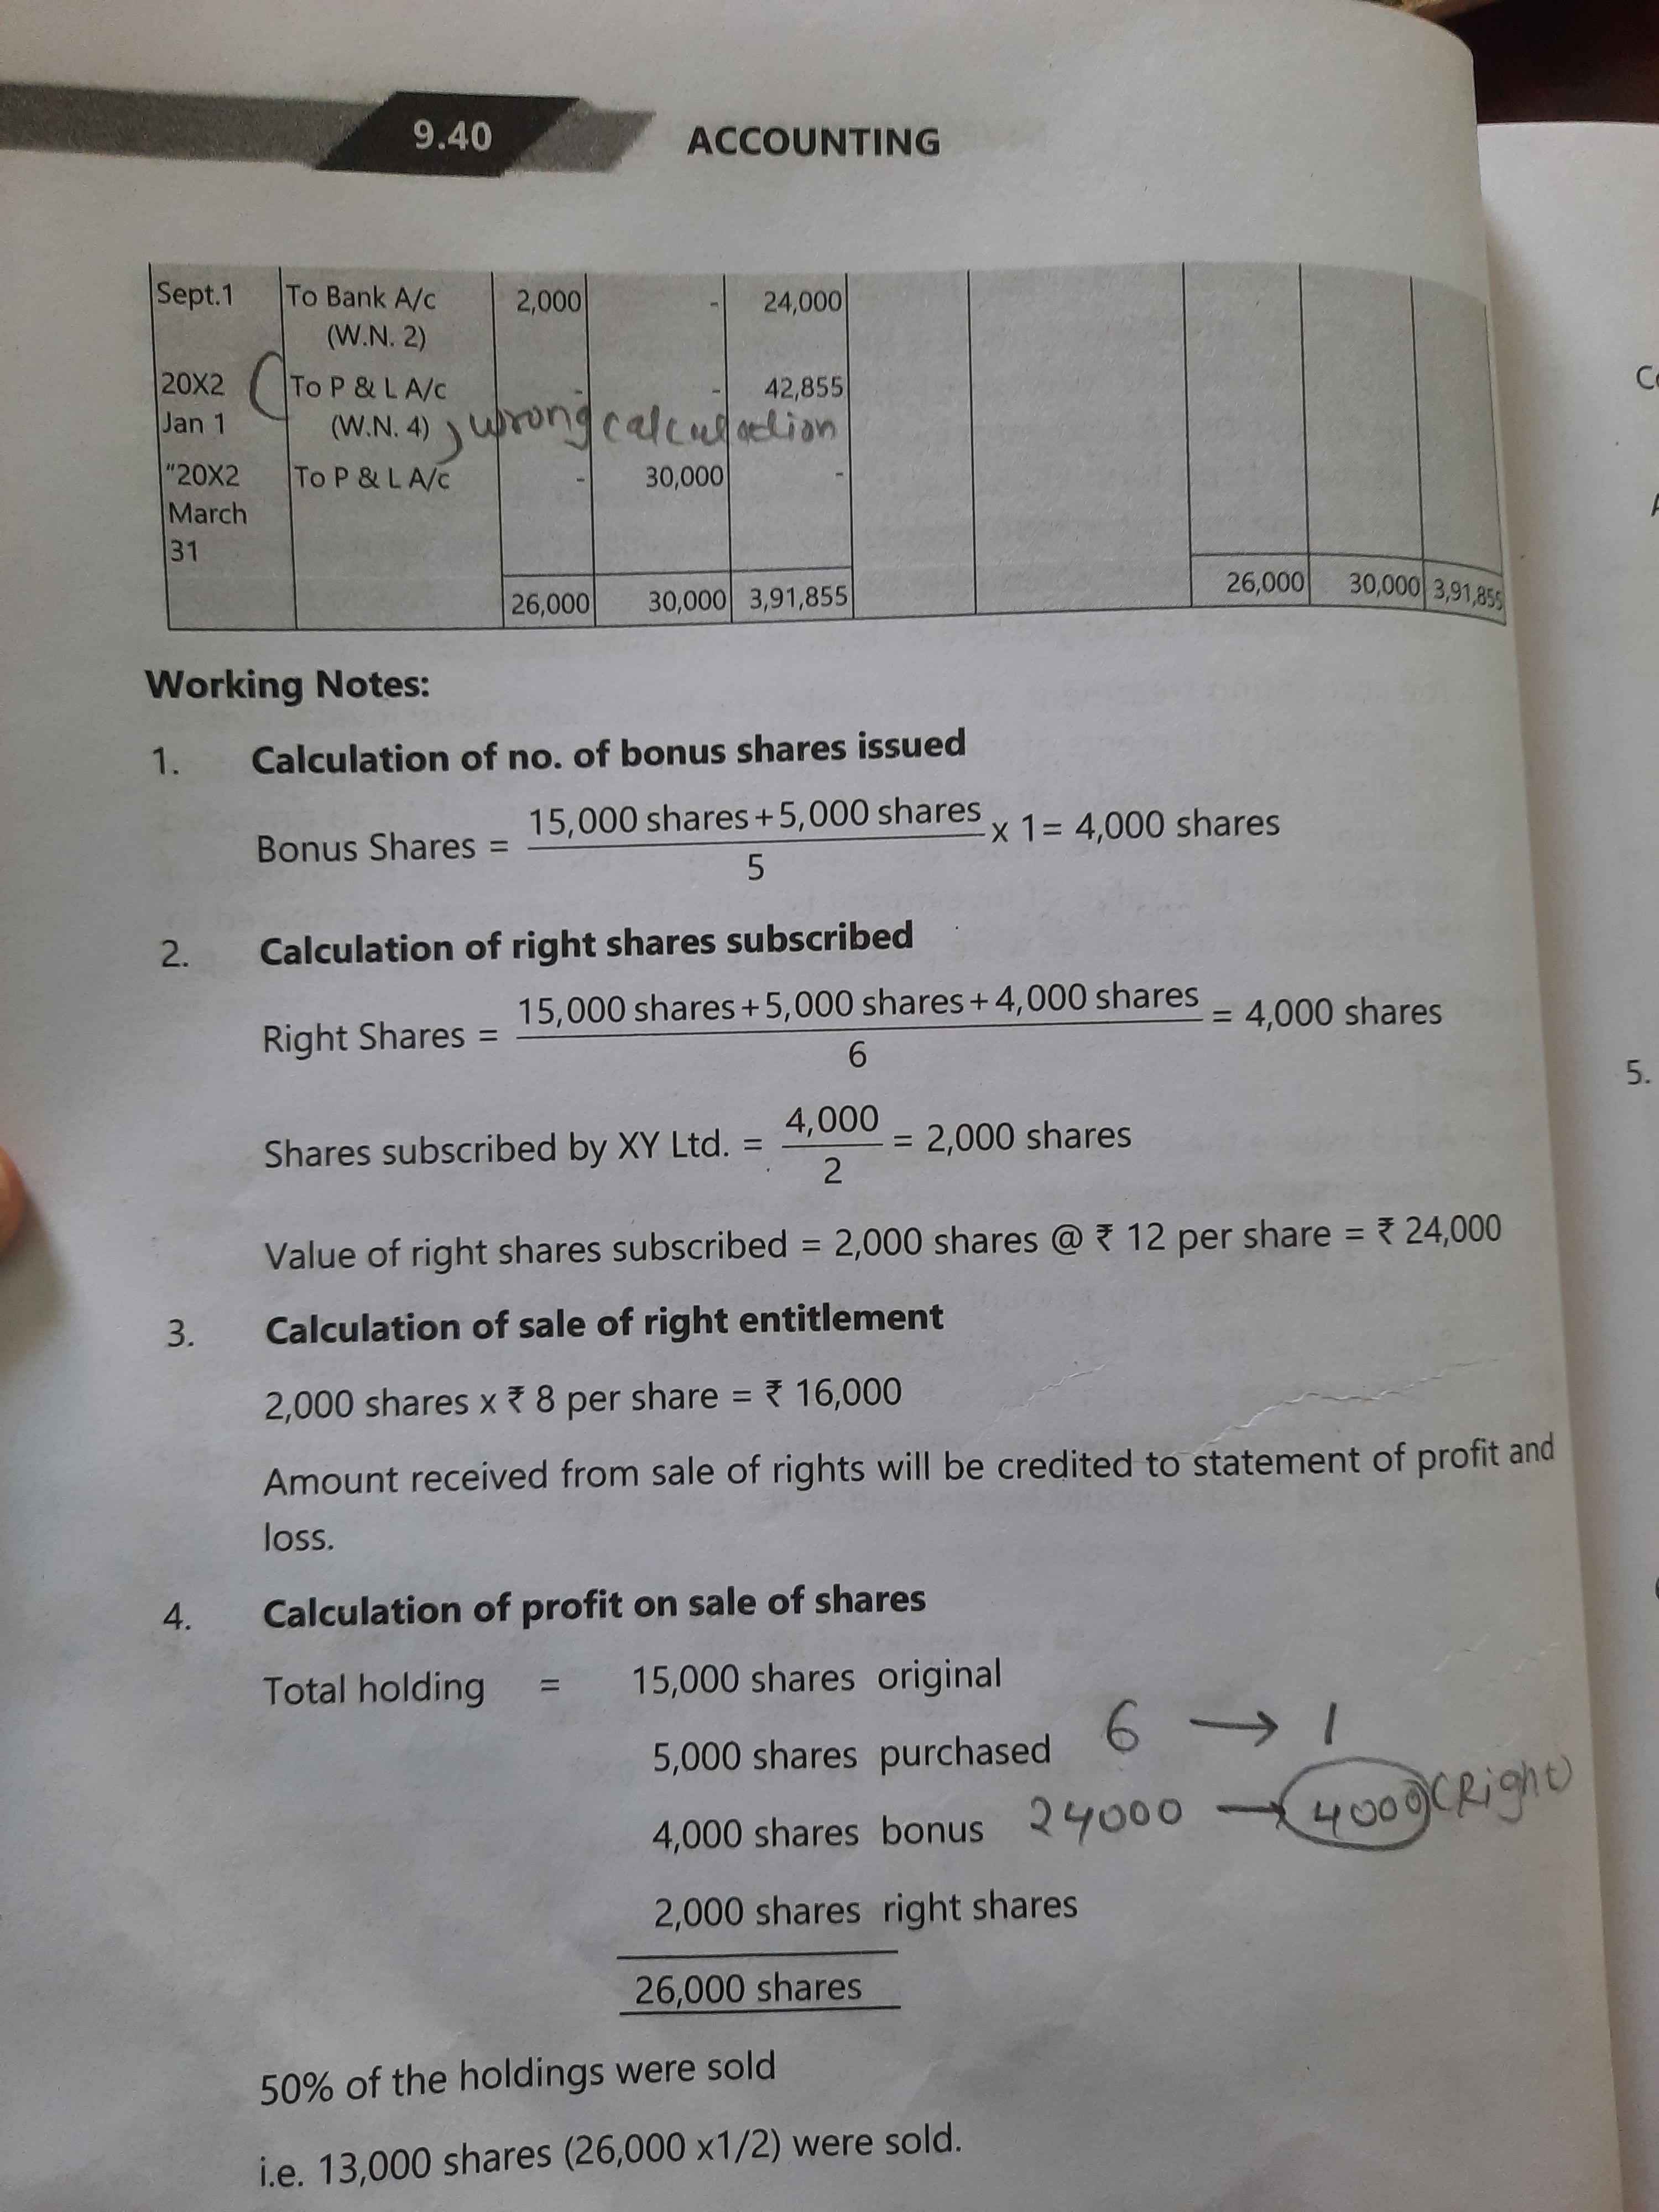 9.40 ACCOUNTING
Sept.1 To Bank A/c 2,000 - 24,000
(W.N. 2)
20X2 To P & L A/c - - 42,855
Jan 1 (W.N. 4) wrong calculation
"20X2 To P & L A/c - 30,000 -
March
31
26,000 30,000 3,91,855 26,000 30,000 3,91,855
Working Notes:
1. Calculation of no. of bonus shares issued
Bonus Shares = 15,000 shares + 5,000 shares / 5 x 1 = 4,000 shares
2. Calculation of right shares subscribed
Right Shares = 15,000 shares + 5,000 shares + 4,000 shares / 6 = 4,000 shares
Shares subscribed by XY Ltd. = 4,000 / 2 = 2,000 shares
Value of right shares subscribed = 2,000 shares @ ₹ 12 per share = ₹ 24,000
3. Calculation of sale of right entitlement
2,000 shares x ₹ 8 per share = ₹ 16,000
Amount received from sale of rights will be credited to statement of profit and
loss.
4. Calculation of profit on sale of shares
Total holding = 15,000 shares original
5,000 shares purchased 6 → 1
4,000 shares bonus 24000 → 4000 (Right)
2,000 shares right shares
26,000 shares
50% of the holdings were sold
i.e. 13,000 shares (26,000 x1/2) were sold.
5.